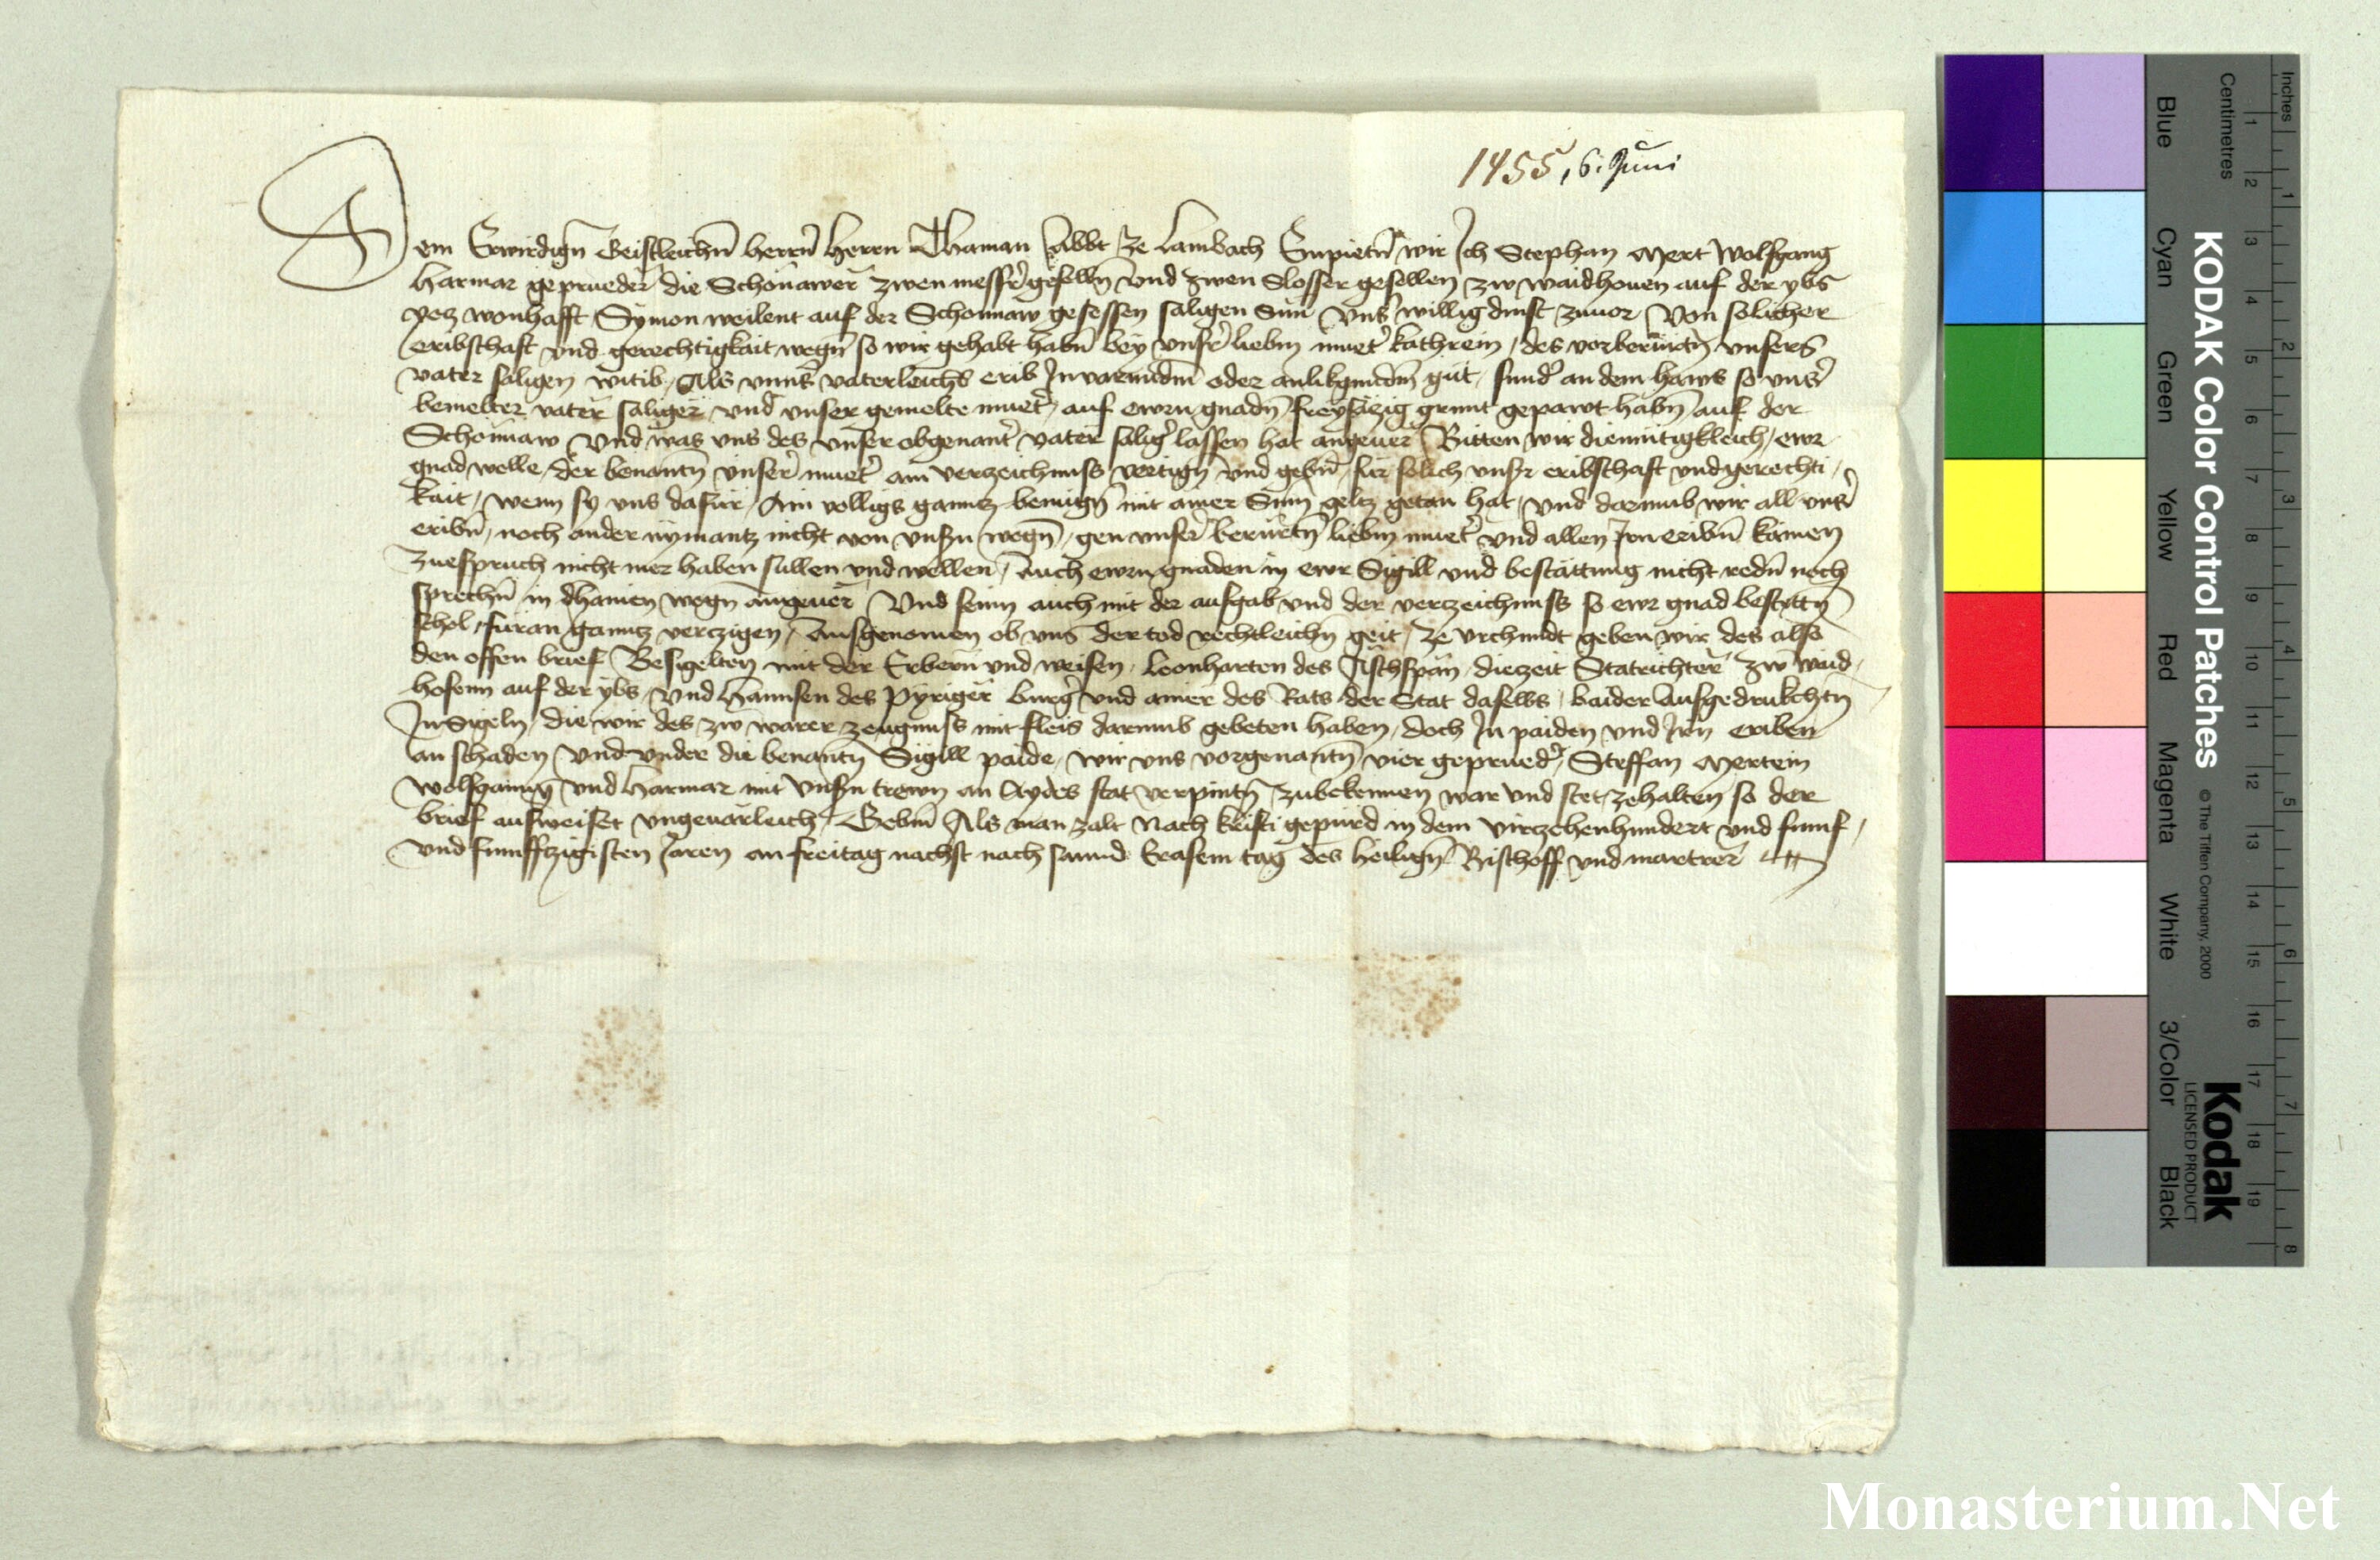 1455, 6. Juni
Dem Erwirdign Geistleichn herrn herrn Thaman Abbt ze Lambach Enpietn wir Ich Stephan Mert Wolfgang
Harmar geprueder die Schonawer zwen messrer geselln vnd zwen Slosser gesellen zw waidhouen auf der ybs
yez wonhafft Symon weilent auf der Schonnaw gesessen saligen Sun vnser willig dinst zuuor Von solicher
eribschaft vnd gerechtigkait wegn so wir gehabt habn bey vnsrer liebm muetter kathrein / des vorberurtn vnsers
vater saligen witib / Als vnnser vaterleichs erib oder gut / sunder an dem haws so vnser
bemelter vater saliger vnd vnser gemelte mueter / auf ewrn gnadn freysazig grunt gepawt habn auf der
Schonnaw vnd was vns des vnser obgenanter vater saliger lassen hat angeuer Bitten wir diemutigkleich / ewr
gnad welle / der benantn vnserer mueter ain verzeichnuss vertign vnd gebm / fur solich vnsr eribschaft vnd gerechti /
kait / wenn sy vns dafur / Ain volligs ganntz benugn mit ainer Sum geltz getan hat / vnd darumb wir all vnser
eribn / noch ander nymantz nicht von vnsrn wegn / gen vnserer berurtn liebm mueter vnd allen Iren eribn kainen
zuespruch nicht mer haben sullen vnd wellen / Auch ewrn gnaden in ewr Sigill vnd bestattung nicht redn noch
sprechn in dhainen wegn angeuer Vnd seinn auch mit der aufgab vnd der verzeichnuss so ewr gnad bestettn
schol / furan ganntz verczigen / Ausgenomen ob vns der tod rechtleichn geit / ze vrchundt geben wir des also
den offen brief Besigelten mit der Erbern vnd weisen / Leonharten des Tischspan / diezeit Statrichter zw waid /
hofenn auf der ybs / vnd Hannsen des Pyriger burger vnd ainer des Rats der Stat daselbs / baider Aufgedrukchtn
Insigeln / die wir des zw warer zeugnuss mit fleis darumb gebeten haben / doch In paiden vnd Irn eriben
an schaden vnd vnder die benantn Sigill paide / wir vns vorgenantn vier geprueder / Steffan Mertein
Wolfganng vnd Harmar mit vnsrn trewn an Aydes stat verpintn zubekennen war vnd stet zehalten so der
brief ausweiset vngeuarleich / Gebm Als man zalt Nach kristi gepurd in dem virzehenhundert vnd funf /
vnd funfftzigisten Jaren an freitag nachst nach sannd Erasem tag des heilign Bischoff vnd martrer
KODAK Color Control Patches
© The Tiffen Company, 2000
Kodak
LICENSED PRODUCT
Inches 1 2 3 4 5 6 7 8
Centimetres 1 2 3 4 5 6 7 8 9 10 11 12 13 14 15 16 17 18 19
Blue Cyan Green Yellow Red Magenta White 3/Color Black
Monasterium.Net